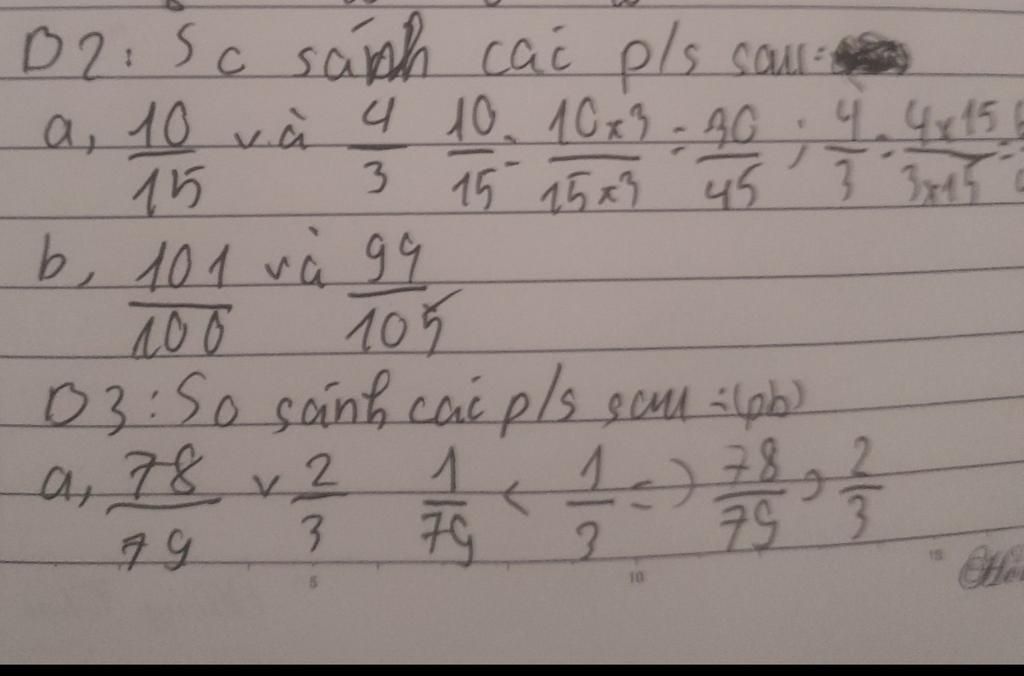 D2: So sánh các p/s sau:
a, 10/15 và 4/3 10/15 = 10x3/15x3 = 30/45 ; 4/3 = 4x15/3x15 =
b, 101/100 và 99/105
D3: So sánh các p/s sau :(pb)
a, 78/79 v 2/3 1/79 < 1/3 => 78/79 > 2/3
5 10 15